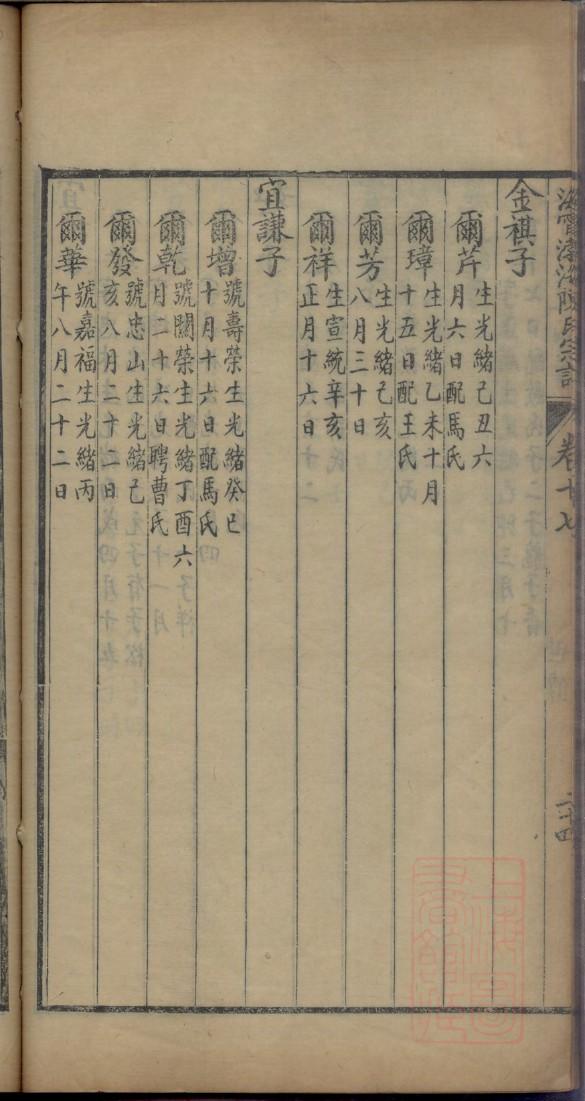 海甯渤海陳氏宗譜 卷十七
二十四
金祺子
爾芹 生光緒己丑六
月六日配馬氏
爾璋 生光緒乙未十月
十五日配王氏
爾芳 生光緒己亥
八月三十日
爾祥 生宣統辛亥
正月十六日
宜謙子
爾增 號壽榮生光緒癸巳
十月十六日配馬氏
爾乾 號關榮生光緒丁酉六
月二十六日聘曹氏
爾發 號忠山生光緒己
亥八月二十二日
爾華 號嘉福生光緒丙
午八月二十二日